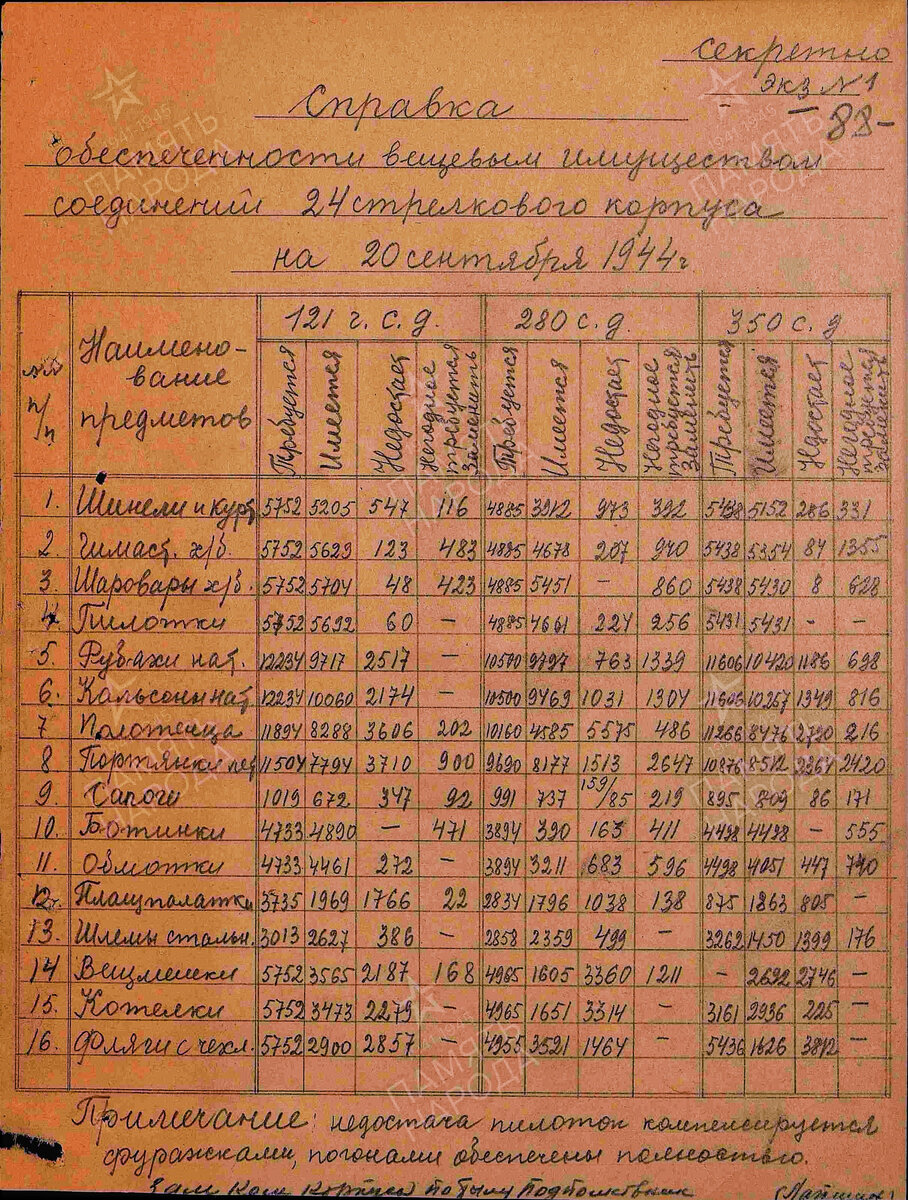 секретно
экз №1
88-
Справка
обеспеченности вещевым имуществом
соединений 24 стрелкового корпуса
на 20 сентября 1944 г
№№ п/п Наименование предметов 121 г. с. д. 280 с. д. 350 с. д
Требуется Имеется Недостает Негодное требуется заменить Требуется Имеется Недостает Негодное требуется заменить Требуется Имеется Недостает Негодное требуется заменить
1. Шинели и курт 5752 5205 547 116 4885 3912 973 392 5438 5152 286 331
2. Гимаст. х/б. 5752 5629 123 483 4885 4678 207 940 5438 5354 84 1355
3. Шаровары х/б. 5752 5704 48 423 4885 5451 – 860 5438 5430 8 628
4. Пилотки 5752 5692 60 – 4885 4661 224 256 5431 5431 - -
5. Рубахи нат. 12234 9717 2517 – 10500 9737 763 1339 11606 10420 1186 698
6. Кальсоны нат 12234 10060 2174 – 10500 9469 1031 1304 11606 10257 1349 816
7 Полотенца 11894 8288 3606 202 10160 4585 5575 486 11266 8476 2790 216
8 Портянки лет 11504 7794 3710 900 9690 8177 1513 2647 10876 8512 2364 2420
9. Сапоги 1019 672 347 92 991 737 159/85 219 895 809 86 171
10. Ботинки 4733 4890 – 471 3894 390 163 411 4498 4498 – 555
11. Обмотки 4733 4461 272 – 3894 3211 683 596 4498 4051 447 740
12. Плащпалатки 3735 1969 1766 22 2834 1796 1038 138 875 1863 805 –
13. Шлемы стальн. 3013 2627 386 – 2858 2359 499 – 3262 1450 1399 176
14 Вещмешки 5752 3565 2187 168 4965 1605 3360 1211 – 2692 2746 –
15. Котелки 5752 3473 2279 – 4965 1651 3314 – 3161 2936 225 –
16. Фляги с чехл. 5752 2900 2857 – 4955 3521 1464 – 5436 1626 3812 –
Примечание: недостача пилоток компенсируется
фуражками, погонами обеспечены полностью.
Зам Ком корпуса по тылу Подполковник
ПАМЯТЬ НАРОДА